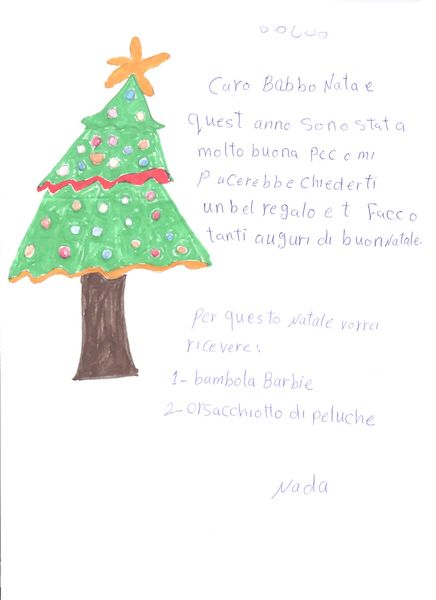 Caro Babbo Nata e
quest anno sono stata
molto buona
chiederti
un bel regalo e t Facco
tanti auguri di buon Natale.
Per questo Natale vorrei
ricevere:
1- bambola Barbie
2- orsacchiotto di peluche
Nada